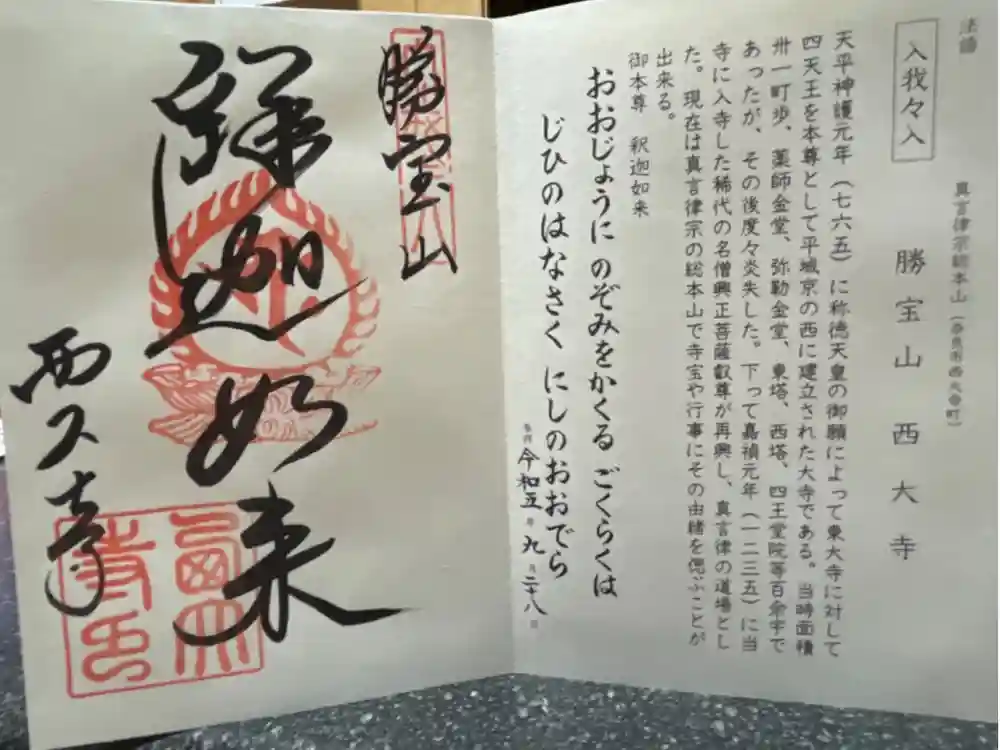 法語
入我々入
真言律宗総本山（奈良市西大寺町）
勝宝山 西大寺
天平神護元年（七六五）に称徳天皇の御願によって東大寺に対して
四天王を本尊として平城京の西に建立された大寺である。当時面積
卅一町歩、薬師金堂、弥勒金堂、東塔、西塔、四王堂院等百余宇で
あったが、その後度々炎失した。下って嘉禎元年（一二三五）に当
寺に入寺した稀代の名僧興正菩薩叡尊が再興し、真言律の道場とし
た。現在は真言律宗の総本山で寺宝や行事にその由緒を偲ぶことが
出来る。
御本尊 釈迦如来
おおじょうに のぞみをかくる ごくらくは
じひのはなさく にしのおおでら
参拝 令和五年九月二十八日
勝宝山
釈迦如来
西大寺